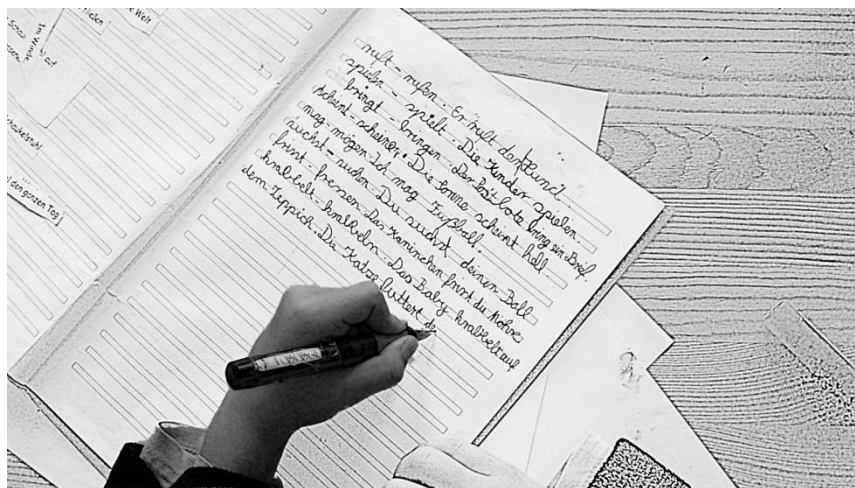 e Welt
fließen
Im Winde
auf
den ganzen Tag
ruft - rufen. Er ruft den Hund
spielen - spielt. Die Kinder spielen.
bringt - bringen. Der Postbote bring ein Brief.
scheint - scheinen. Die Sonne scheint hell.
mag - mögen. Ich mag Fußball.
suchst - suchen. Du suchst deinen Ball
frist - fressen. Das Kaninchen frist die Möhre.
krabbelt - krabbeln. Das Baby krabbelt auf
dem Teppich. Die Katze futtert de